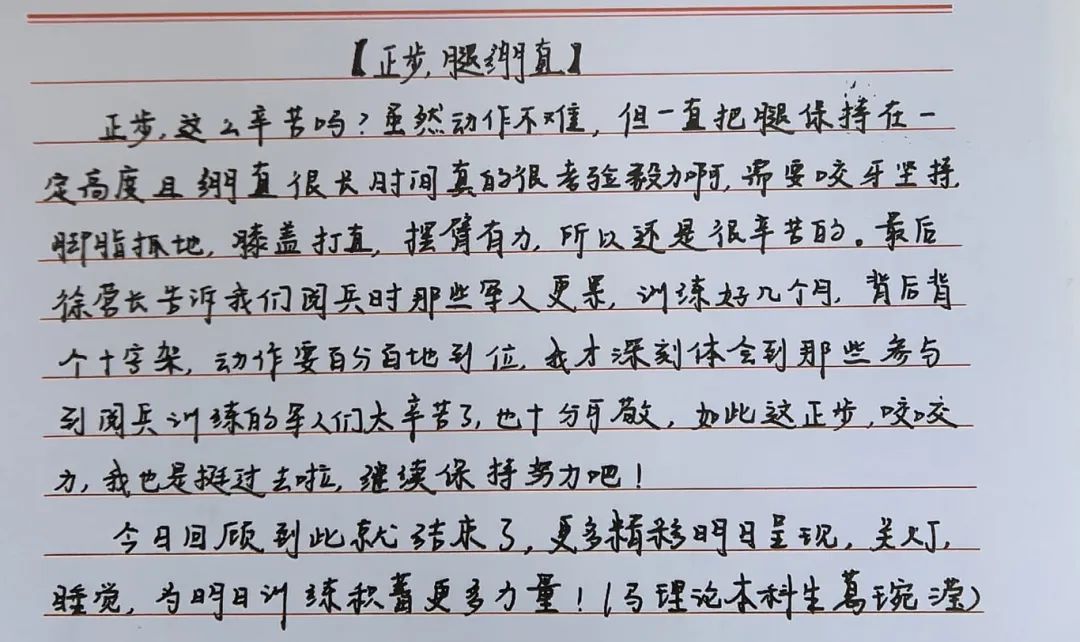 【正步,腿绷直】
正步,这么辛苦吗?虽然动作不难,但一直把腿保持在一
定高度且绷直很长时间真的很考验毅力啊,需要咬牙坚持,
脚脂抓地,膝盖打直,摆臂有力,所以还是很辛苦的。最后
徐营长告诉我们阅兵时那些军人更累,训练好几个月,背后背
个十字架,动作要百分百地到位,我才深刻体会到那些参与
到阅兵训练的军人们太辛苦了,也十分可敬,如此这正步,咬咬
力,我也是挺过去啦,继续保持努力吧!
今日回顾到此就结束了,更多精彩明日呈现,关灯,
睡觉,为明日训练积蓄更多力量!(马理论本科生葛琬滢)